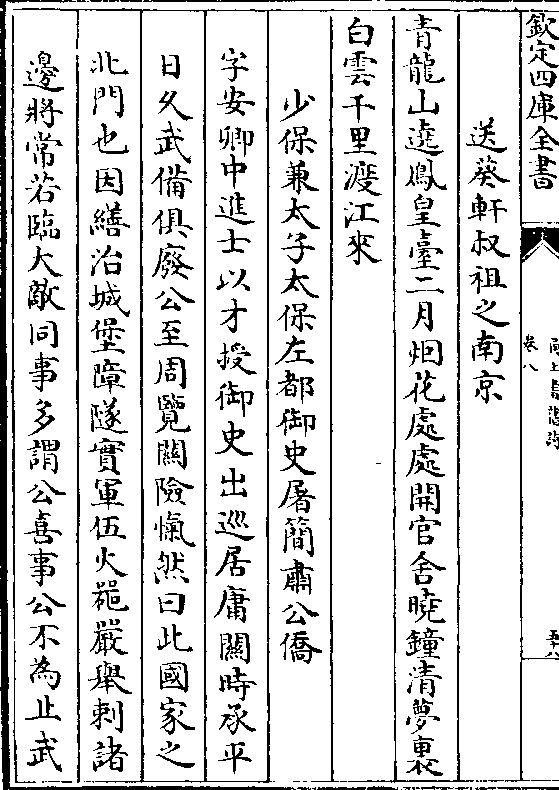 欽定四庫全書
卷八
送葵軒叔祖之南京
青龍山遶鳳皇臺二月烟花處處開官舍曉鐘清夢裏
白雲千里渡江來
少保兼太子太保左都御史屠簡肅公僑
字安卿中進士以才授御史出巡居庸關時承平
日久武備俱廢公至周覽關險愾然曰此國家之
北門也因繕治城堡障隧實軍伍火器嚴舉刺諸
邊將常若臨大敵同事多謂公喜事公不為止武